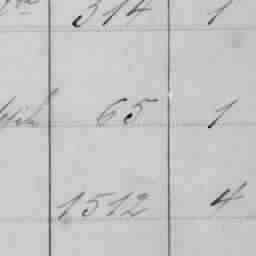 314 1
65 1
1512 4